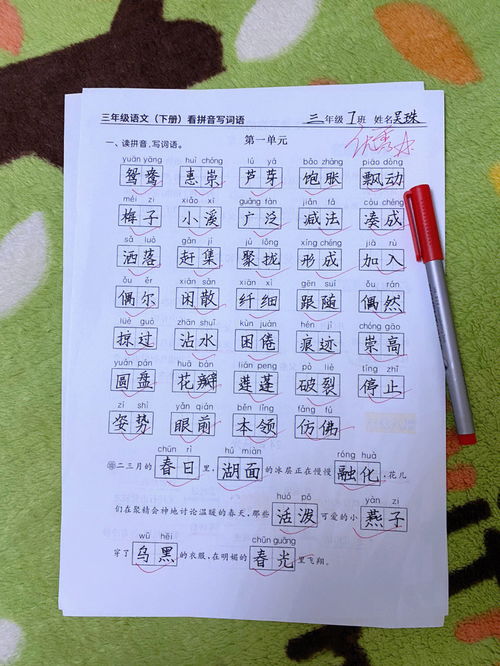 三年级语文（下册）看拼音写词语 三年级 1班 姓名吴珠
优秀
第一单元
一、读拼音，写词语。
yuān yāng huì chóng lú yá bǎo zhàng piāo dòng
鸳鸯 惠崇 芦芽 饱胀 飘动
méi zi xiǎo xī guǎng fàn jiǎn fǎ còu chéng
梅子 小溪 广泛 减法 凑成
sǎ luò gǎn jí jù lǒng xíng chéng jiā rù
洒落 赶集 聚拢 形成 加入
ǒu ěr xián sàn xiān xì gēn suí ǒu rán
偶尔 闲散 纤细 跟随 偶然
lüè guò zhān shuǐ kùn juàn hén jì chóng gāo
掠过 沾水 困倦 痕迹 崇高
yuán pán huā bàn lián peng pò liè tíng zhǐ
圆盘 花瓣 莲蓬 破裂 停止
zī shì yǎn qián běn lǐng fǎng fú
姿势 眼前 本领 仿佛
chūn rì hú miàn róng huà
二三月的春日里，湖面的冰层正在慢慢融化，花儿
huó pō yàn zi
们在聚精会神地讨论温暖的春天，那些活泼可爱的小燕子
wū hēi chūn guāng
穿了乌黑的衣服，在明媚的春光里飞翔。